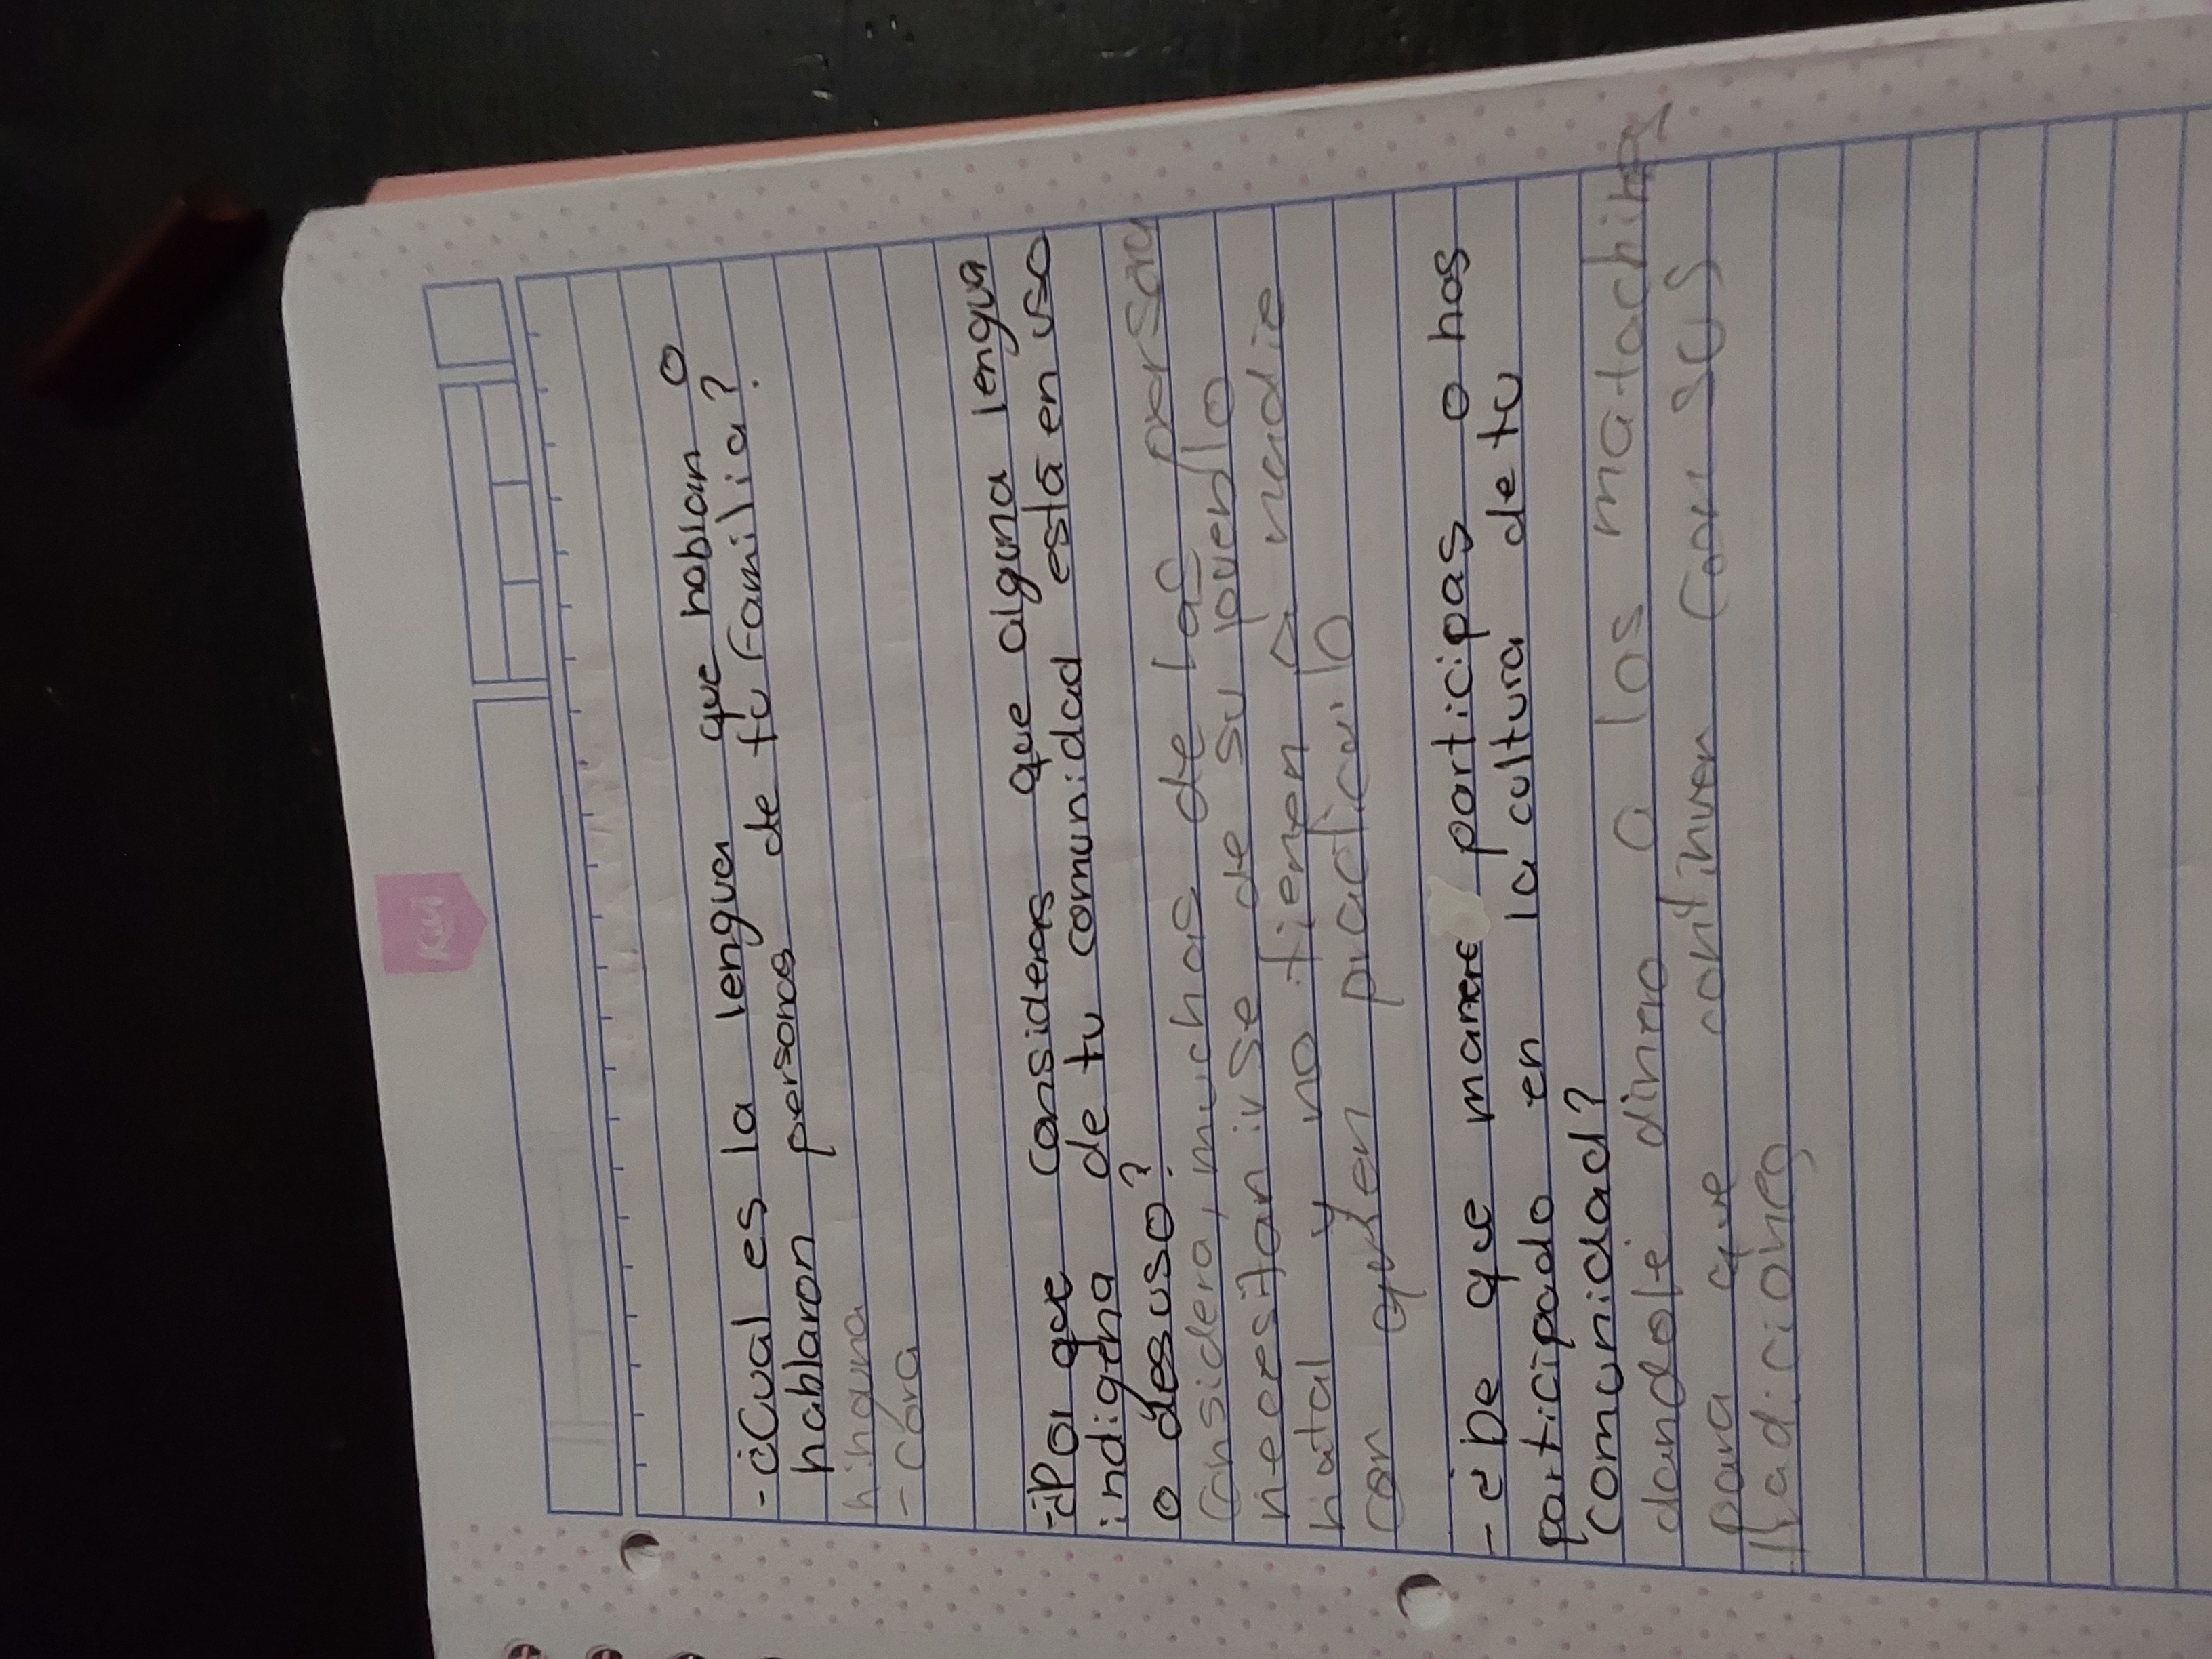 Kiut
- ¿Cual es la lengua que hablan o
hablaron personas de tu familia?
ninguna
- cora
- ¿Por que consideras que alguna lengua
indigena de tu comunidad está en uso
o desuso?
Considera, muchas de las persona
necesitan irse de su pueblo
natal y no tienen a nadie
con quien practicarlo
- ¿De que manere participas o has
participado en la cultura de tu
comunidad?
dandole dinero a los matachines
para que continuen con sus
tradiciones